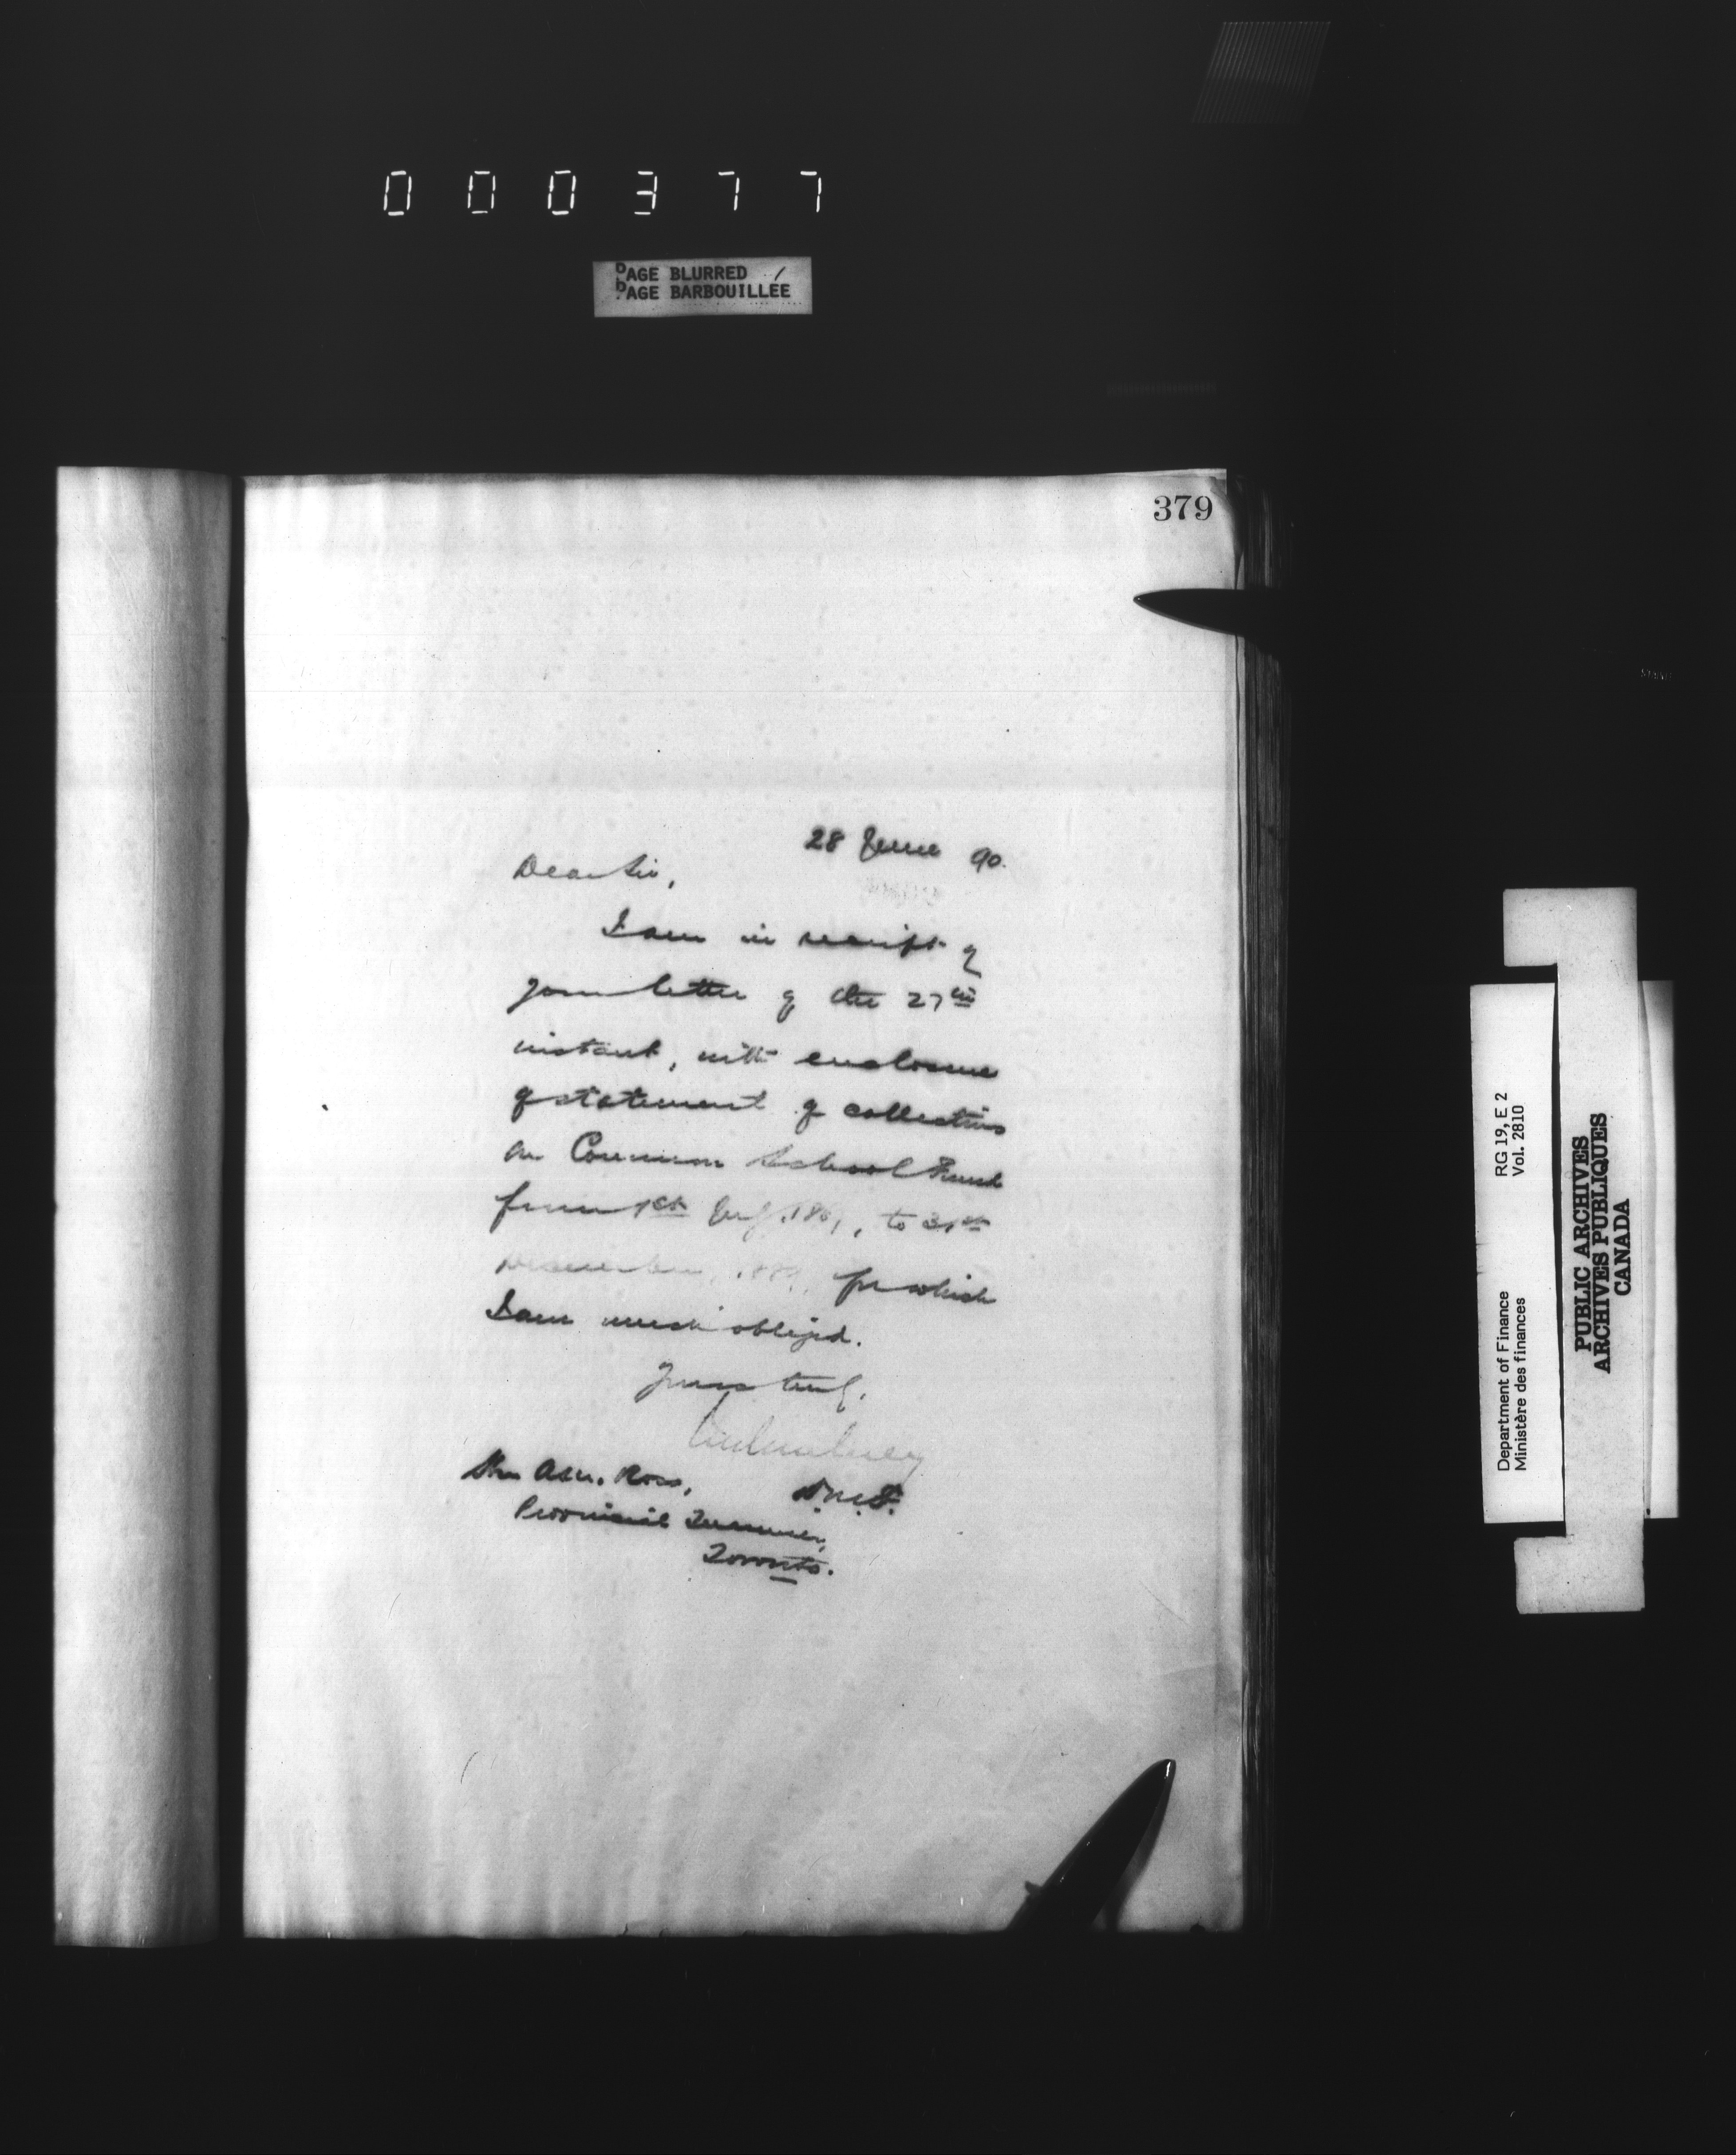 000377
PAGE BLURRED
PAGE BARBOUILLÉE
379
28 June 90.
Dear Sir,
I am in receipt of
your letter of the 27th
instant, with enclosure
of statement of collections
on Common School Fund
from 1st July, 1867, to 31st
December, 1889, for which
I am much obliged.
Yours truly,
D.M.F.
Hon A.M. Ross,
Provincial Treasurer,
Toronto.
Department of Finance RG 19, E 2
Ministère des finances Vol. 2810
PUBLIC ARCHIVES
ARCHIVES PUBLIQUES
CANADA